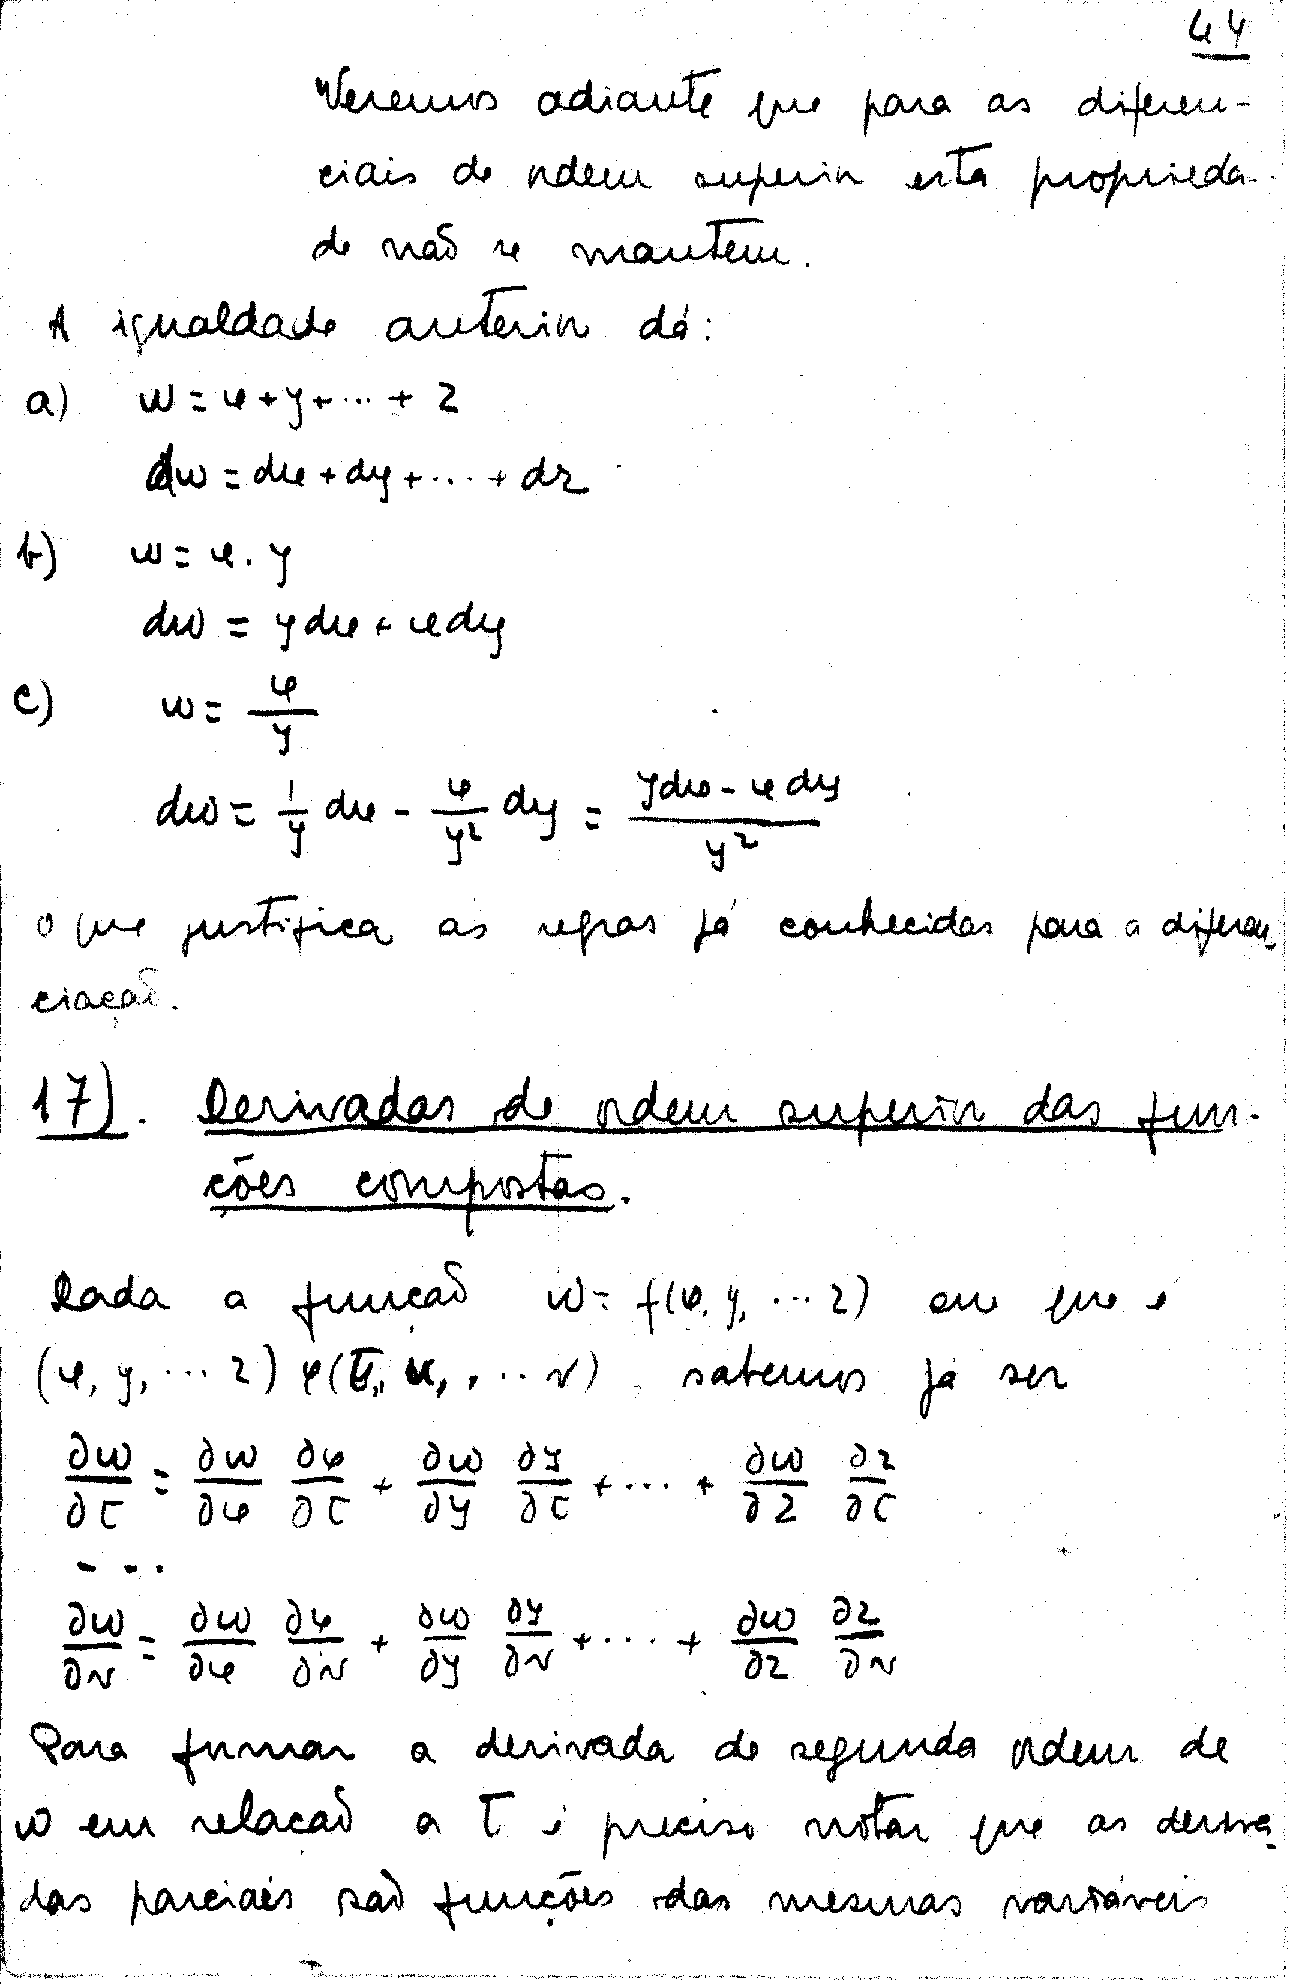 44
Veremos adiante que para as diferen-
ciais de ordem superior esta proprieda-
de não se mantem.
A igualdade anterior dá:
a) w = x + y + ... + z
dw = dx + dy + ... + dz
b) w = x . y
dw = y dx + x dy
c) w = x/y
dw = 1/y dx - x/y² dy = (y dx - x dy)/y²
o que justifica as regras já conhecidas para a diferen-
ciação.
17). Derivadas de ordem superior das fun-
ções compostas.
Dada a função w = f(x, y, ... z) em que é
(x, y, ... z) φ(t, u, ... v) sabemos já ser
∂w/∂t = ∂w/∂x ∂x/∂t + ∂w/∂y ∂y/∂t + ... + ∂w/∂z ∂z/∂t
- ...
∂w/∂v = ∂w/∂x ∂x/∂v + ∂w/∂y ∂y/∂v + ... + ∂w/∂z ∂z/∂v
Para formar a derivada de segunda ordem de
w em relação a t é preciso notar que as deriva-
das parciais são funções das mesmas variáveis